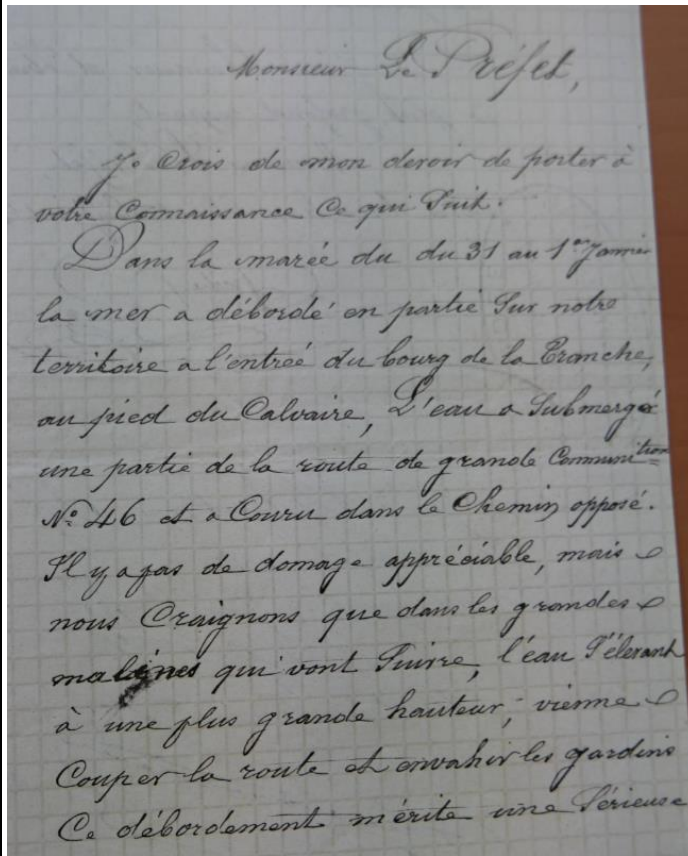 Monsieur Le Préfet,
Je Crois de mon devoir de porter à
votre Connaissance Ce qui Suit.
Dans la marée du du 31 au 1er Janvier
la mer a débordé en partie Sur notre
territoire a l'entrée du bourg de la Tranche,
au pied du Calvaire, L'eau a Submergé
une partie de la route de grande Communition
No 46 et a Couru dans le Chemin opposé.
Il y a pas de domage appréciable, mais
nous Craignons que dans les grandes
malines qui vont Suivre, l'eau S'élevant
à une plus grande hauteur, vienne
Couper la route et envahir les gardins
Ce débordement mérite une Sérieuse